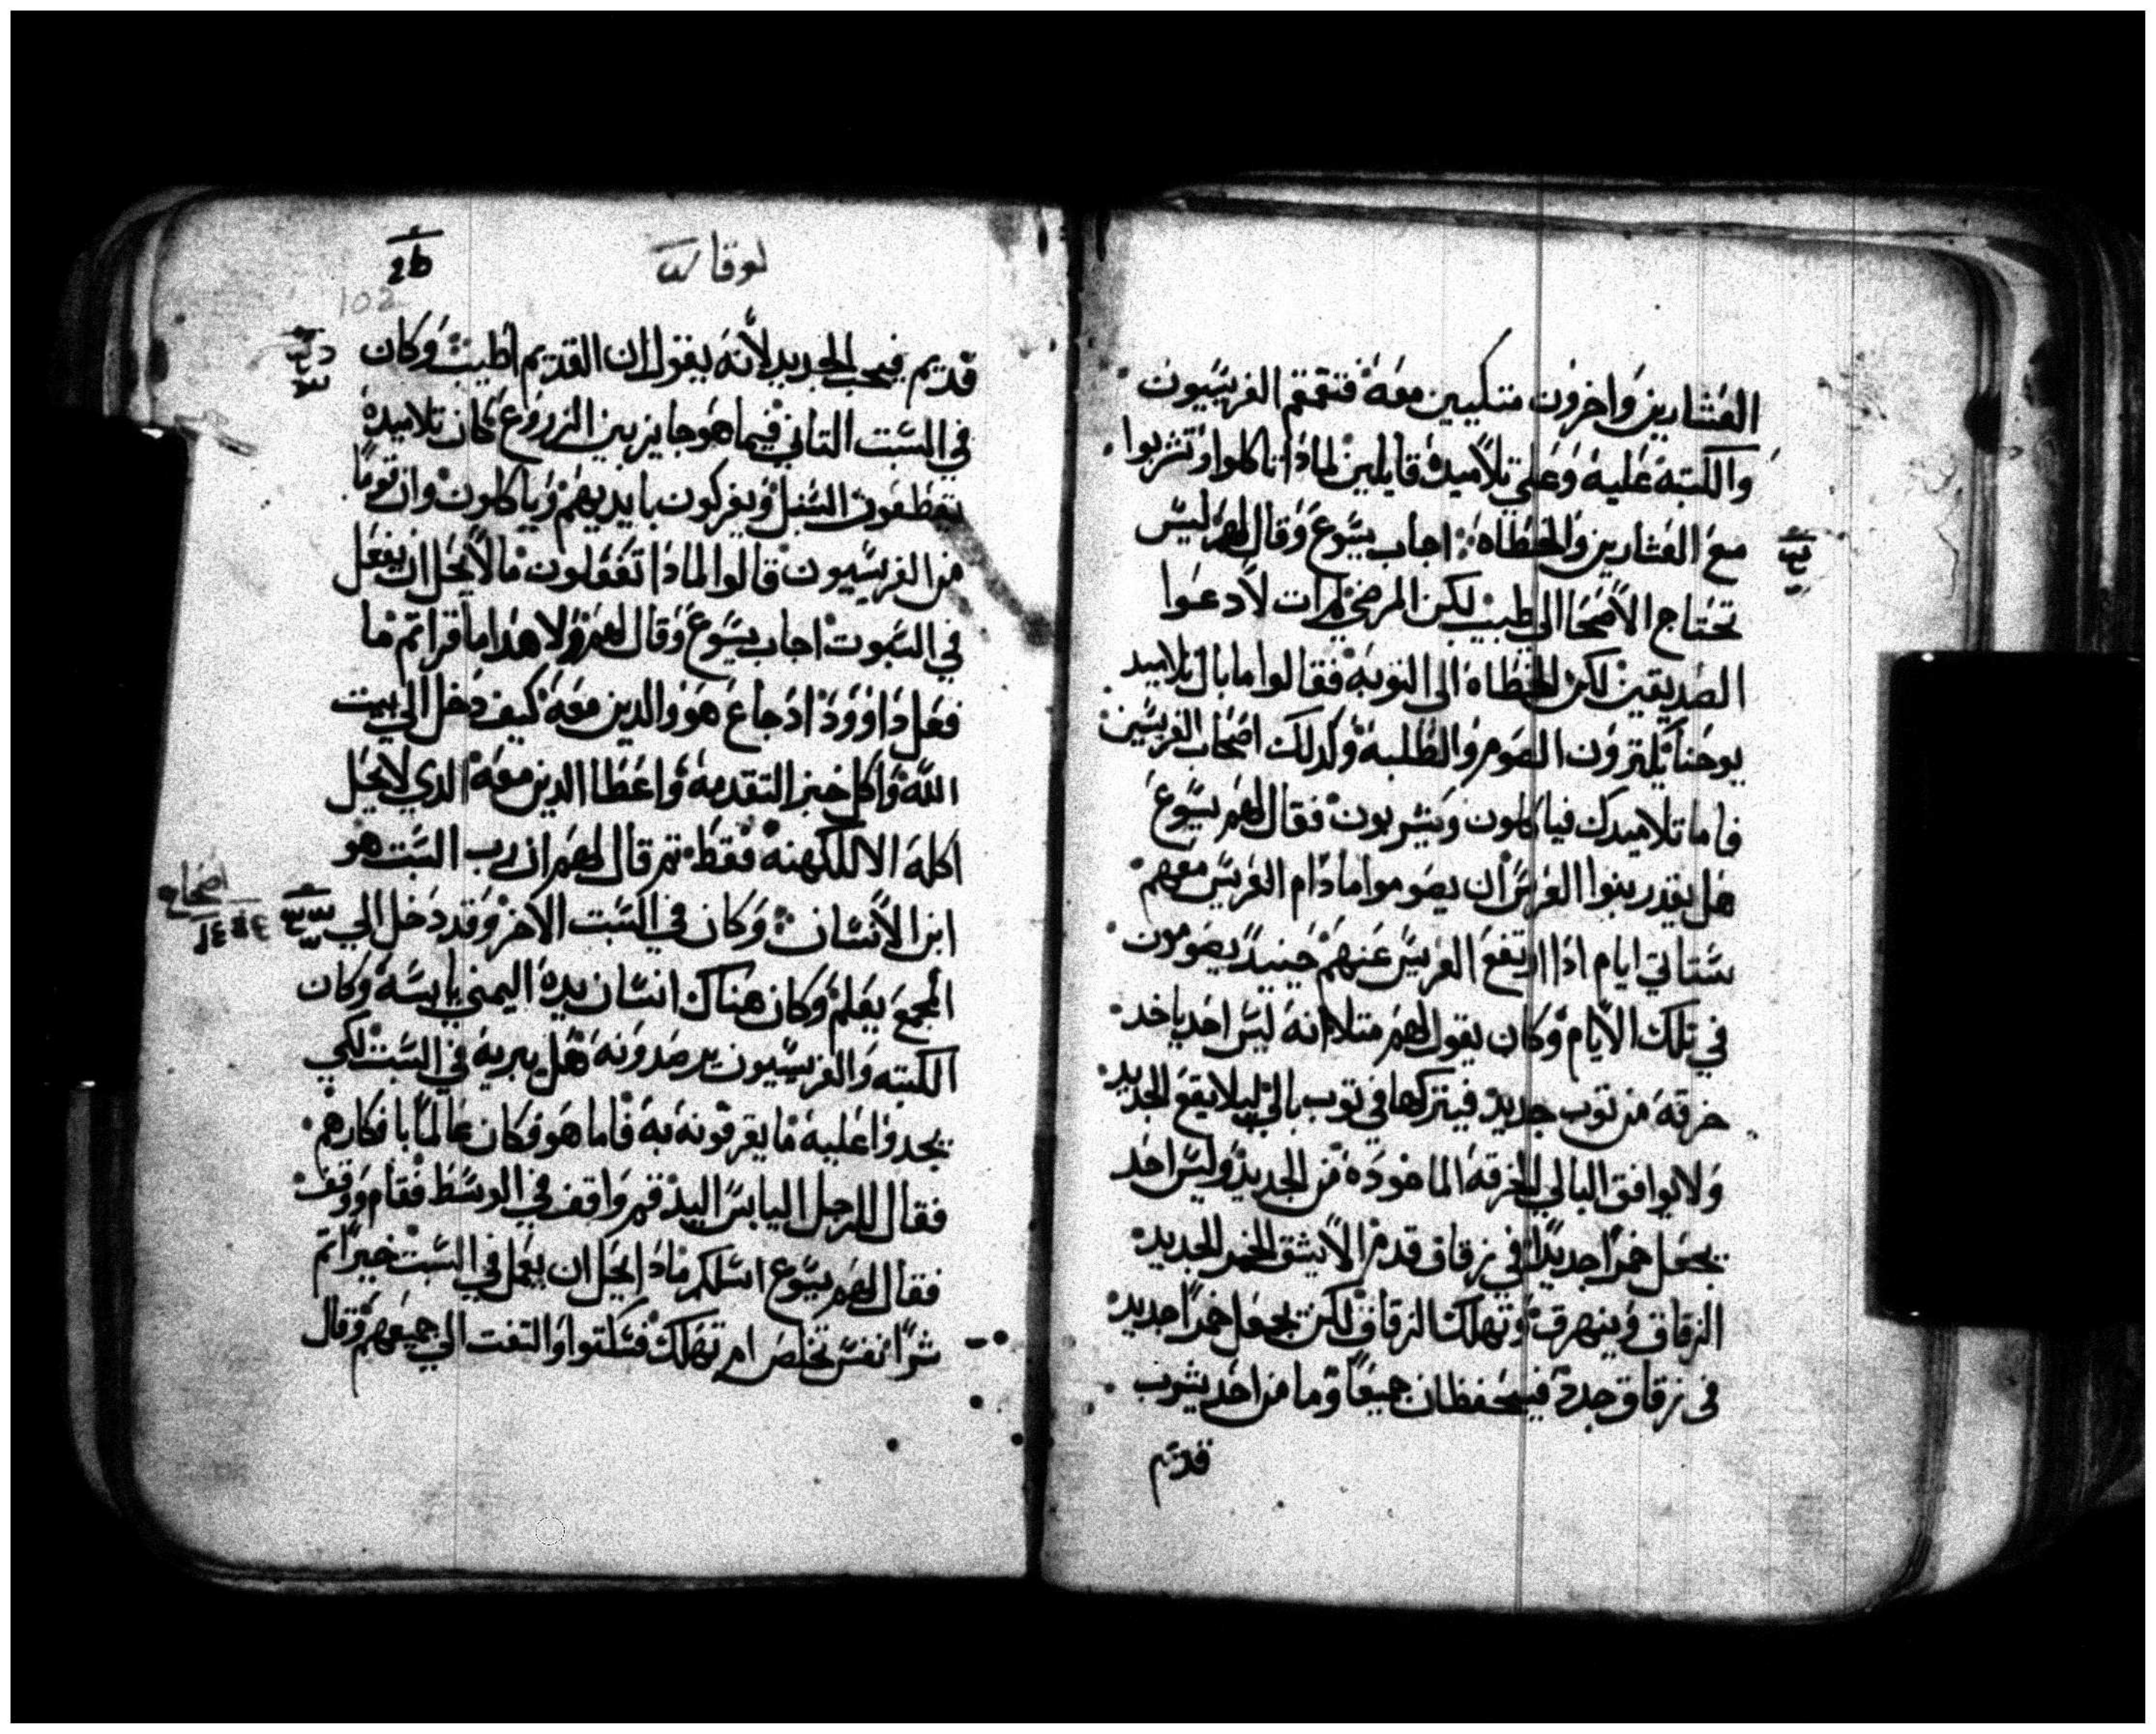 العشارين واخرون متكيين معه فتقمقم الفريسيون
والكتبة عليه وعلي تلاميده قايلين لمادا تاكلوا وتشربوا
مع العشارين والخطاه اجاب يسوع وقال لهم ليس
تحتاج الاصحا الي طبيب لكن المرضي لم ات لادعوا
الصديقين لكن الخطاه الى التوبة فقالوا ما بال تلاميد
يوحنا يلترون الصوم والطلبة وكدلك اصحاب الفريسين
فاما تلاميدك فياكلون ويشربون فقال لهم يسوع
هل يقدر بنوا العرس ان يصوموا مادام العريس معهم
ستاتي ايام ادا ارتفع العريس عنهم حينيد يصومون
في تلك الايام وكان يقول لهم متلا انه ليس احد ياخد
خرقه من توب جديد فيتركها في توب بالي ليلا يقع الجديد
ولا يوافق البالي الخرقه الماخوده من الجديد وليس احد
يجعل خمرا جديدا في زقاق قدم الا يشق الخمر الجديد
الزقاق وينهرق وتهلك الزقاق لكن يجعل خمرا جديد
في زقاق جدد فيحفظان جميعا وما من احد يشرب
قديم
لوقا
102
قديم فيحب الجديد لانه يقول ان القديم اطيب وكان
في السبت التاني فيما هو جايز بين الزروع كان تلاميده
يقطفون السنبل ويفركون بايديهم وياكلون وان قوما
من الفريسيون قالوا لمادا تفعلون ما لا يحل ان يفعل
في السبوت اجاب يسوع وقال لهم ولا هدا ما قراتم ما
فعل داوود اد جاع هو والدين معه كيف دخل الي بيت
الله واكل خبز التقدمه واعطا الدين معه الدي لا يحل
اكله الا للكهنه فقط تم قال لهم ان رب السبت هو
ابن الانسان وكان في السبت الاخر وقد دخل الي
اصحاح
المجمع يعلم وكان هناك انسان يده اليمني يابسه وكان
الكتبه والفريسيون يرصدونه هل يبريه في السبت لكي
يجدوا عليه ما يقرفونه به فاما هو فكان عالما بافكارهم
فقال للرجل اليابس اليد قم واقف في الوسط فقام ووقف
فقال لهم يسوع اسلكم مادا يحل ان يعمل في السبت خيرا تم
شرا نفس تخلص ام تهلك فسكتوا والتفت الي جميعهم وقال